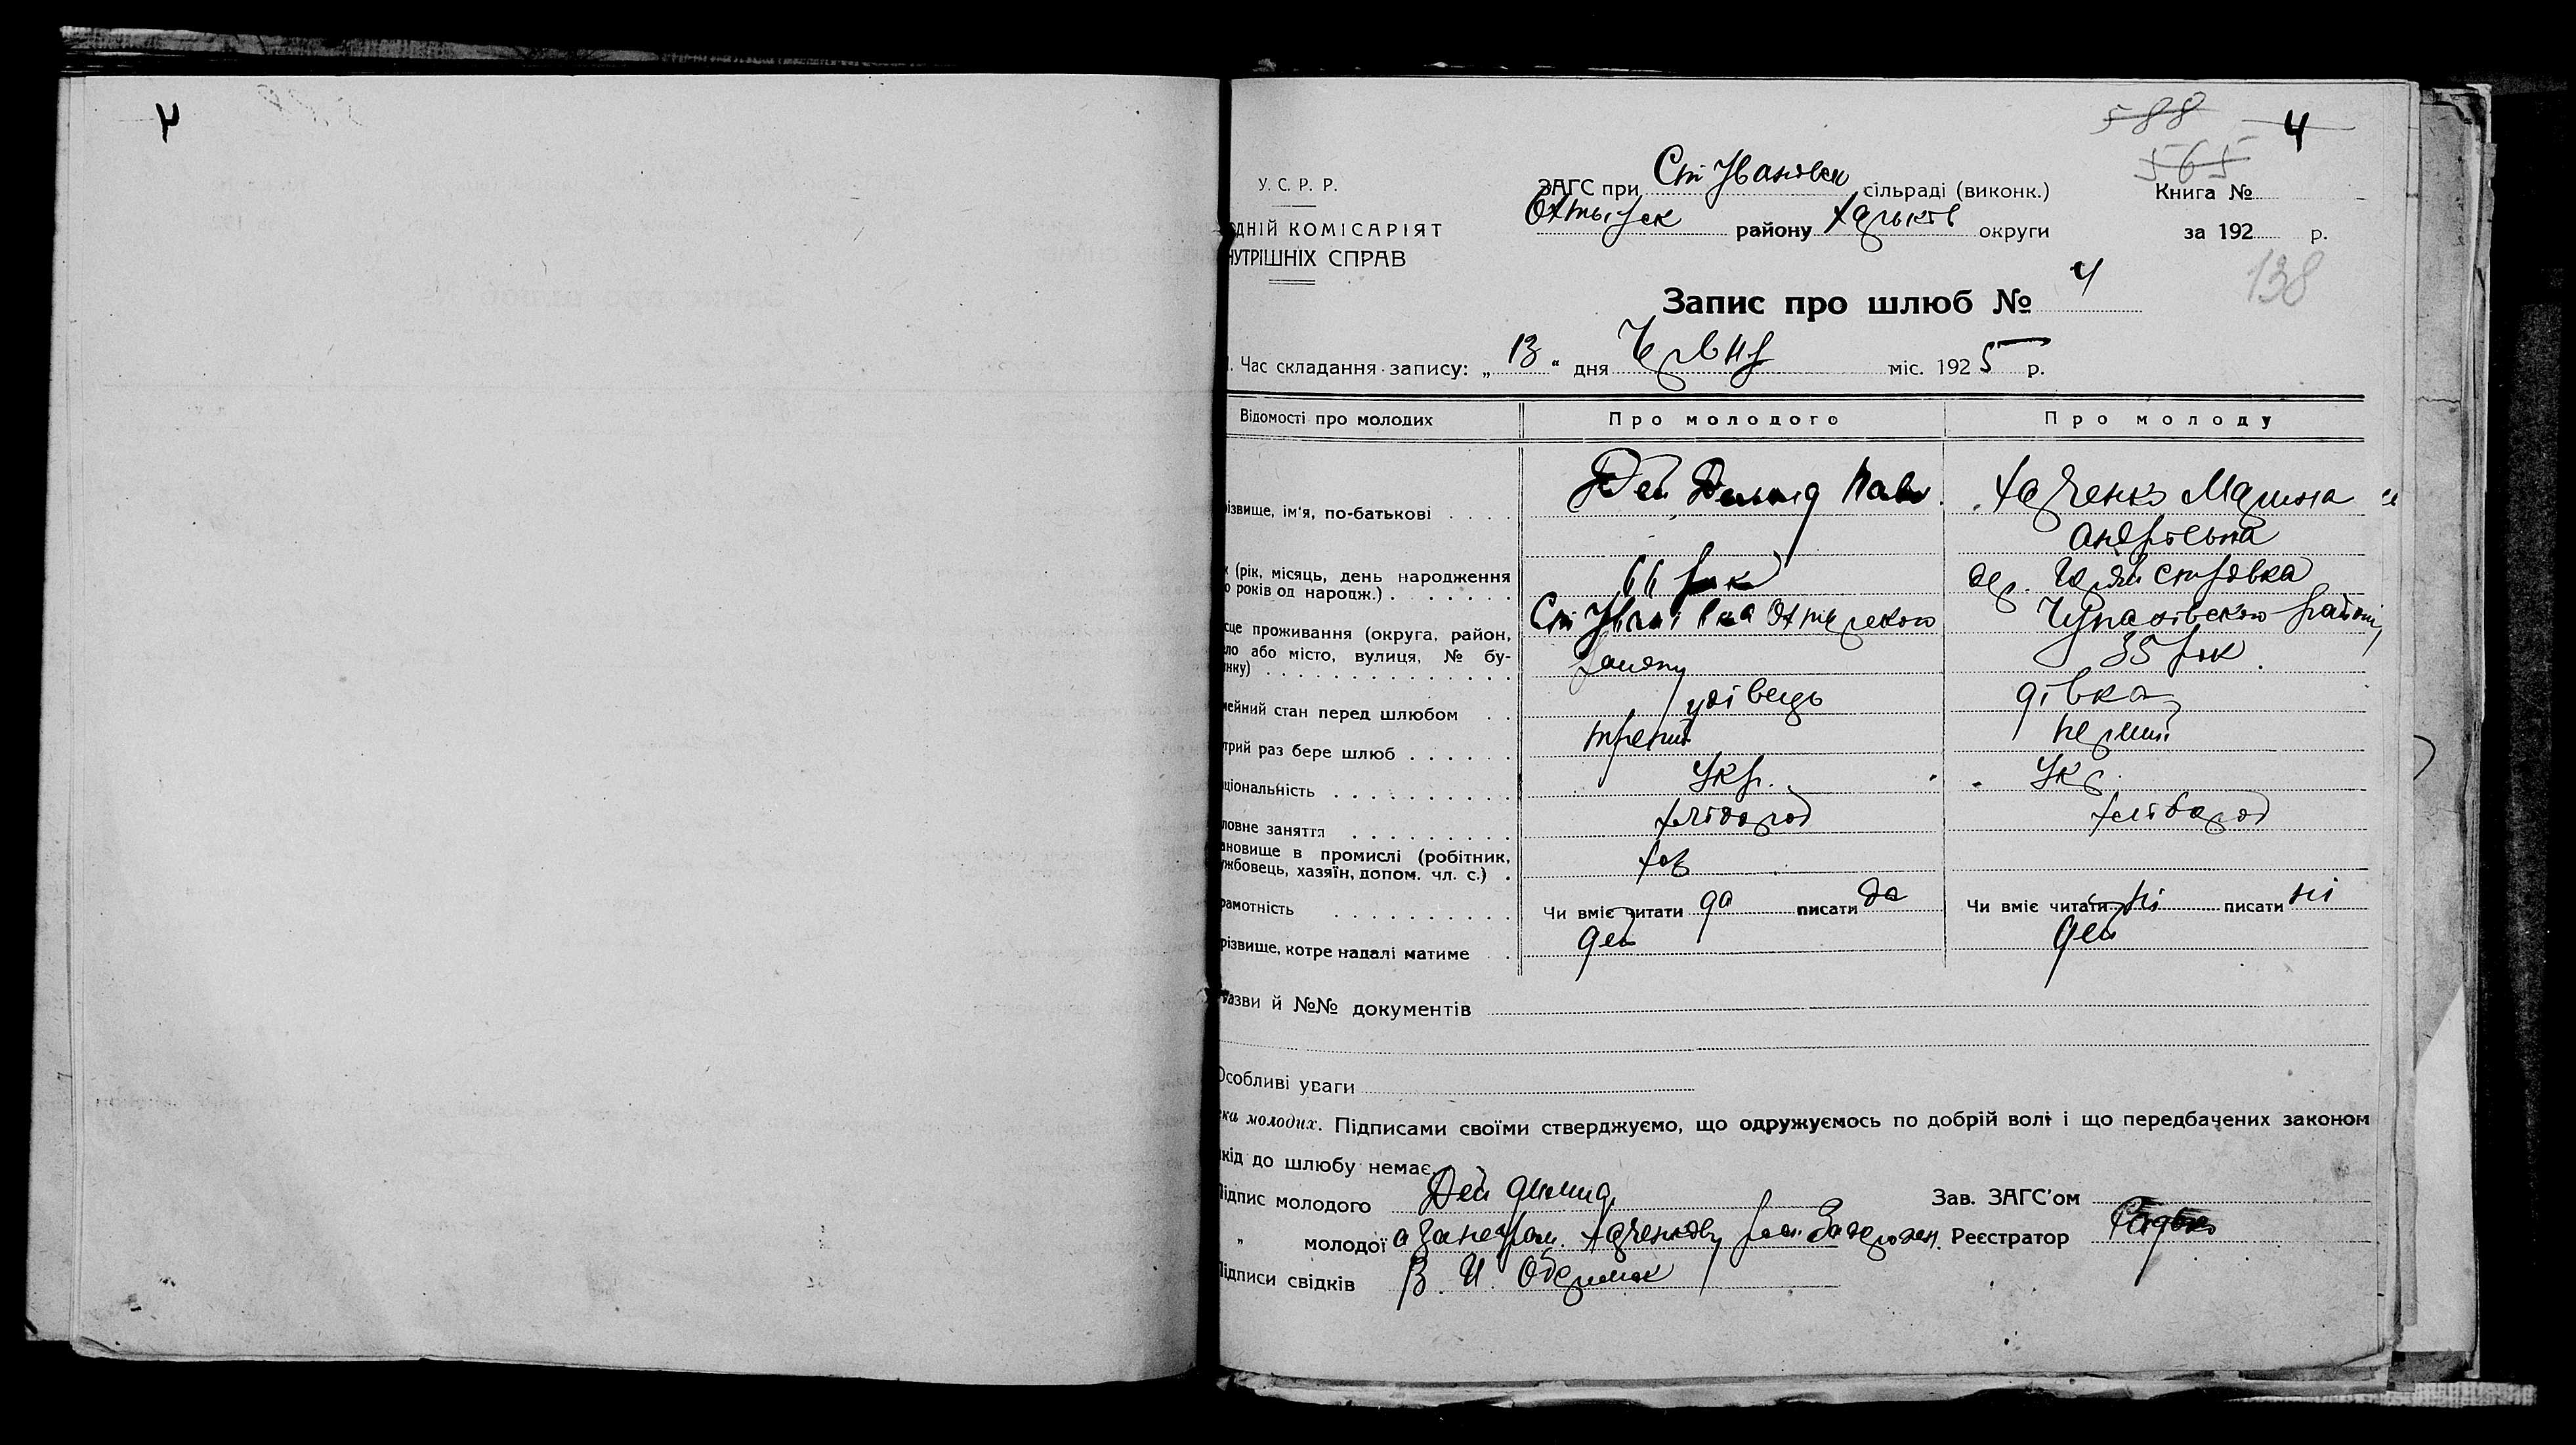 4
588
4
565
У. С. Р. Р.
ЗАГС при Ст Ивановск сільраді (виконк.)
Книга №
Охтырск району Харьков округи
за 192 р.
ДНІЙ КОМІСАРІЯТ
НУТРІШНІХ СПРАВ
138
Запис про шлюб № 4
Час складання запису: „ 13 " дня Червня міс. 1925 р.
Відомості про молодих
Про молодого
Про молоду
різвище, ім'я, по-батькові
Дей Демид Павл.
Харченко Марина
Андріевна
к (рік, місяць, день народження
о років од народж.)
66 рок
дер.
сце проживання (округа, район,
ло або місто, вулиця, № бу-
инку)
Ст Іванівка Охтирского
району
Чупахівского району
35 рок.
мейний стан перед шлюбом
удівець
дівка
трий раз бере шлюб
третий
перший
ціональність
Укр.
Укр.
ловне заняття
хлібороб
хлібороб
ановище в промислі (робітник,
ужбовець, хазяїн, допом. чл. с.)
хаз
рамотність
Чи вміє читати да писати да
Чи вміє читати ні писати ні
різвище, котре надалі матиме
Дей
Дей
азви й №№ документів
Особливі уваги
ека молодих. Підписами своїми стверджуємо, що одружуємось по добрій волі і що передбачених законом
кід до шлюбу немає.
Підпис молодого Дей Демид
Зав. ЗАГС'ом
„ молодої а за неграм. Харченкову рос.
Реєстратор
Підписи свідків В. И.